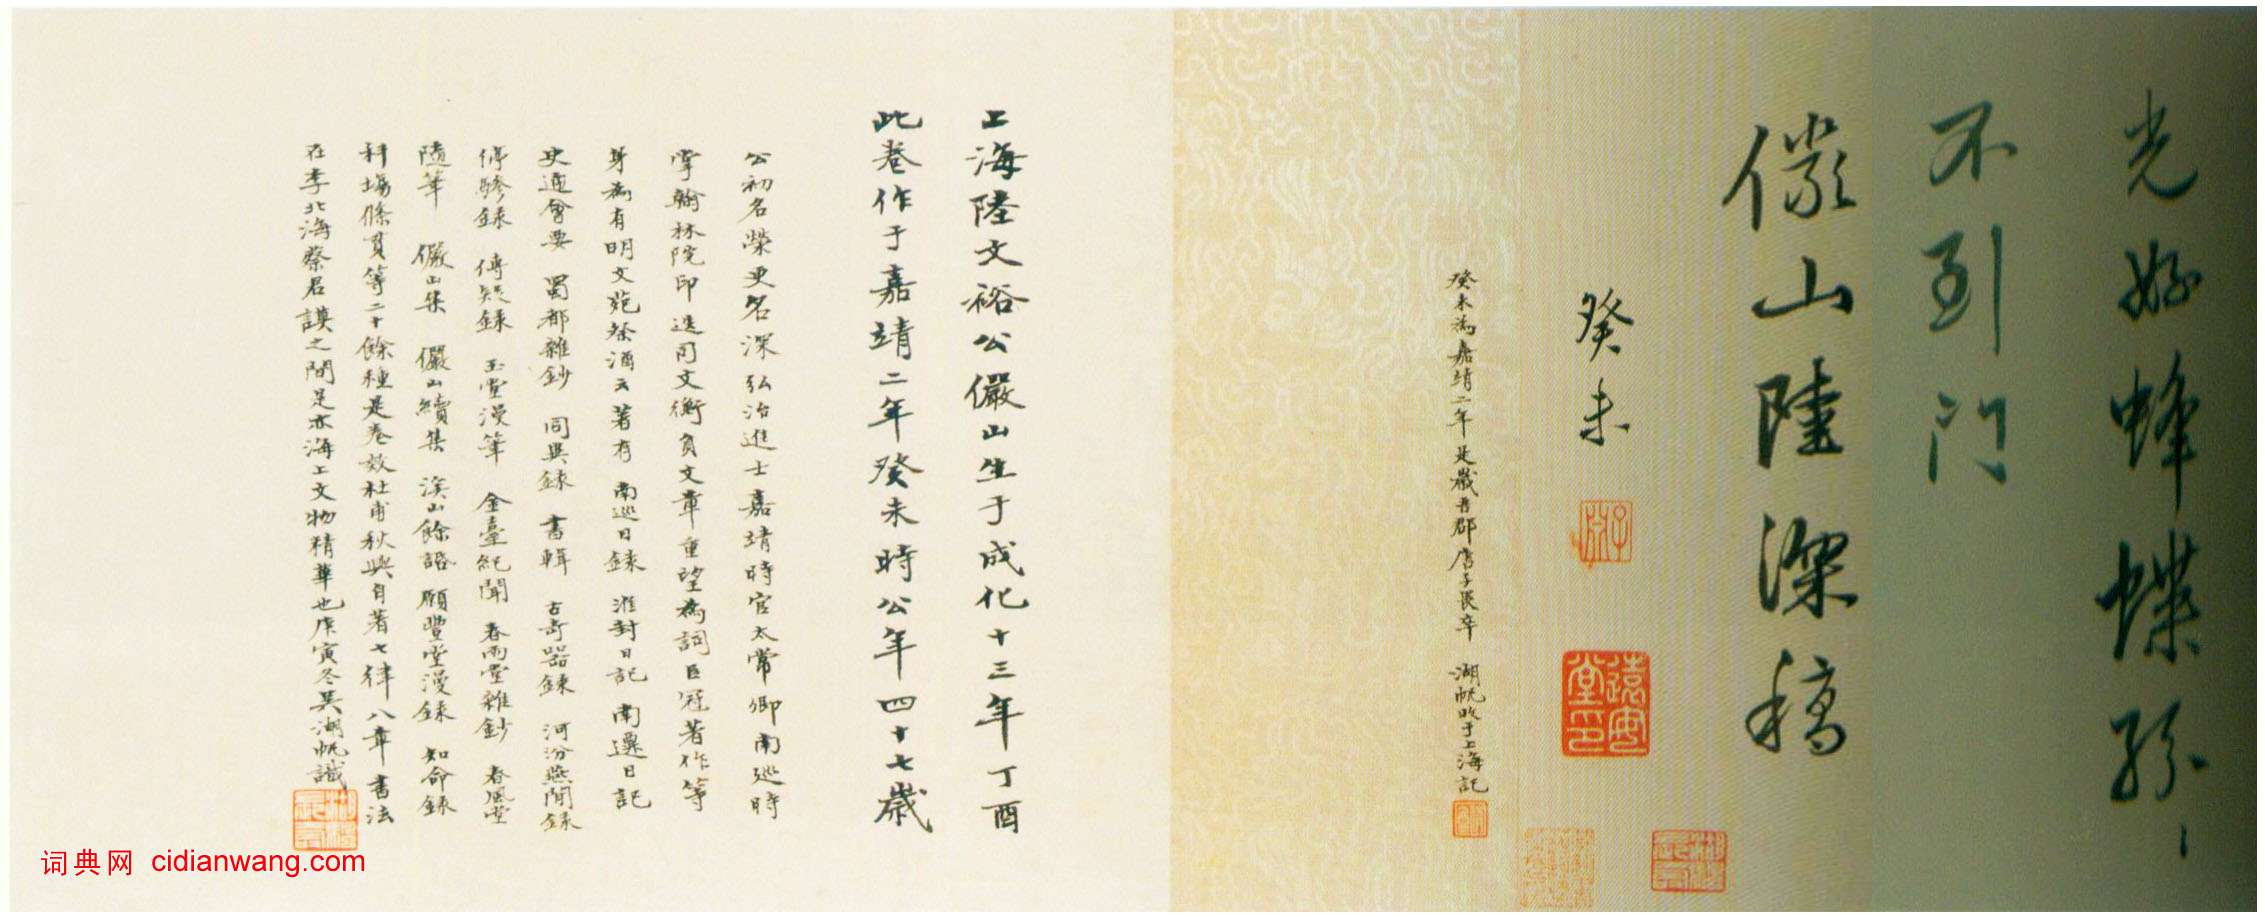 光好蜂蝶紛〻
不到門
儼山陸深稿
癸未
子淵
遠安堂印
癸未為嘉靖二年是歲吾郡唐子畏卒 湖帆收于上海記
上海陸文裕公儼山生于成化十三年丁酉
此卷作于嘉靖二年癸未時公年四十七歲
公初名榮更名深弘治進士嘉靖時官太常卿南巡時
掌翰林院印迭司文衡負文章重望為詞臣冠著作等
身為有明文苑祭酒云著有 南巡日錄 淮封日記 南遷日記
史通會要 蜀都雜鈔 同異錄 書輯 古奇器錄 河汾燕閒錄
停驂錄 傳疑錄 玉堂漫筆 金臺紀聞 春雨堂雜鈔 春風堂
隨筆 儼山集 儼山續集 溪山餘話 願豐堂漫錄 知命錄
科場條貫等二十餘種是卷效杜甫秋興自著七律八章書法
在李北海蔡君謨之間是亦海上文物精華也庚寅冬吳湖帆識
词典网 cidianwang.com